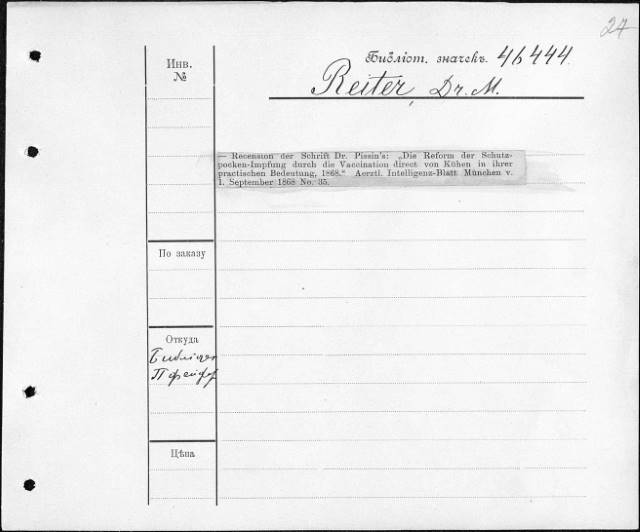 27
Библіот. значекъ. 46444
Reiter, Dr. M.
Инв.
№
— Recension der Schrift Dr. Pissin's: „Die Reform der Schutz-
pocken-Impfung durch die Vaccination direct von Kühen in ihrer
practischen Bedeutung, 1868.“ Aerztl. Intelligenz-Blatt München v.
1. September 1868 No. 35.
По заказу
Откуда
Пфейфер
Цѣна